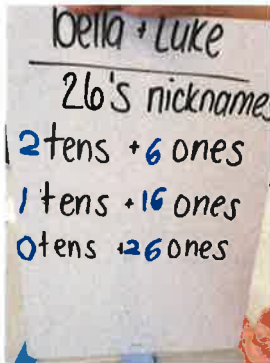 bella + Luke
26's nicknames
2 tens + 6 ones
1 tens + 16 ones
0 tens + 26 ones